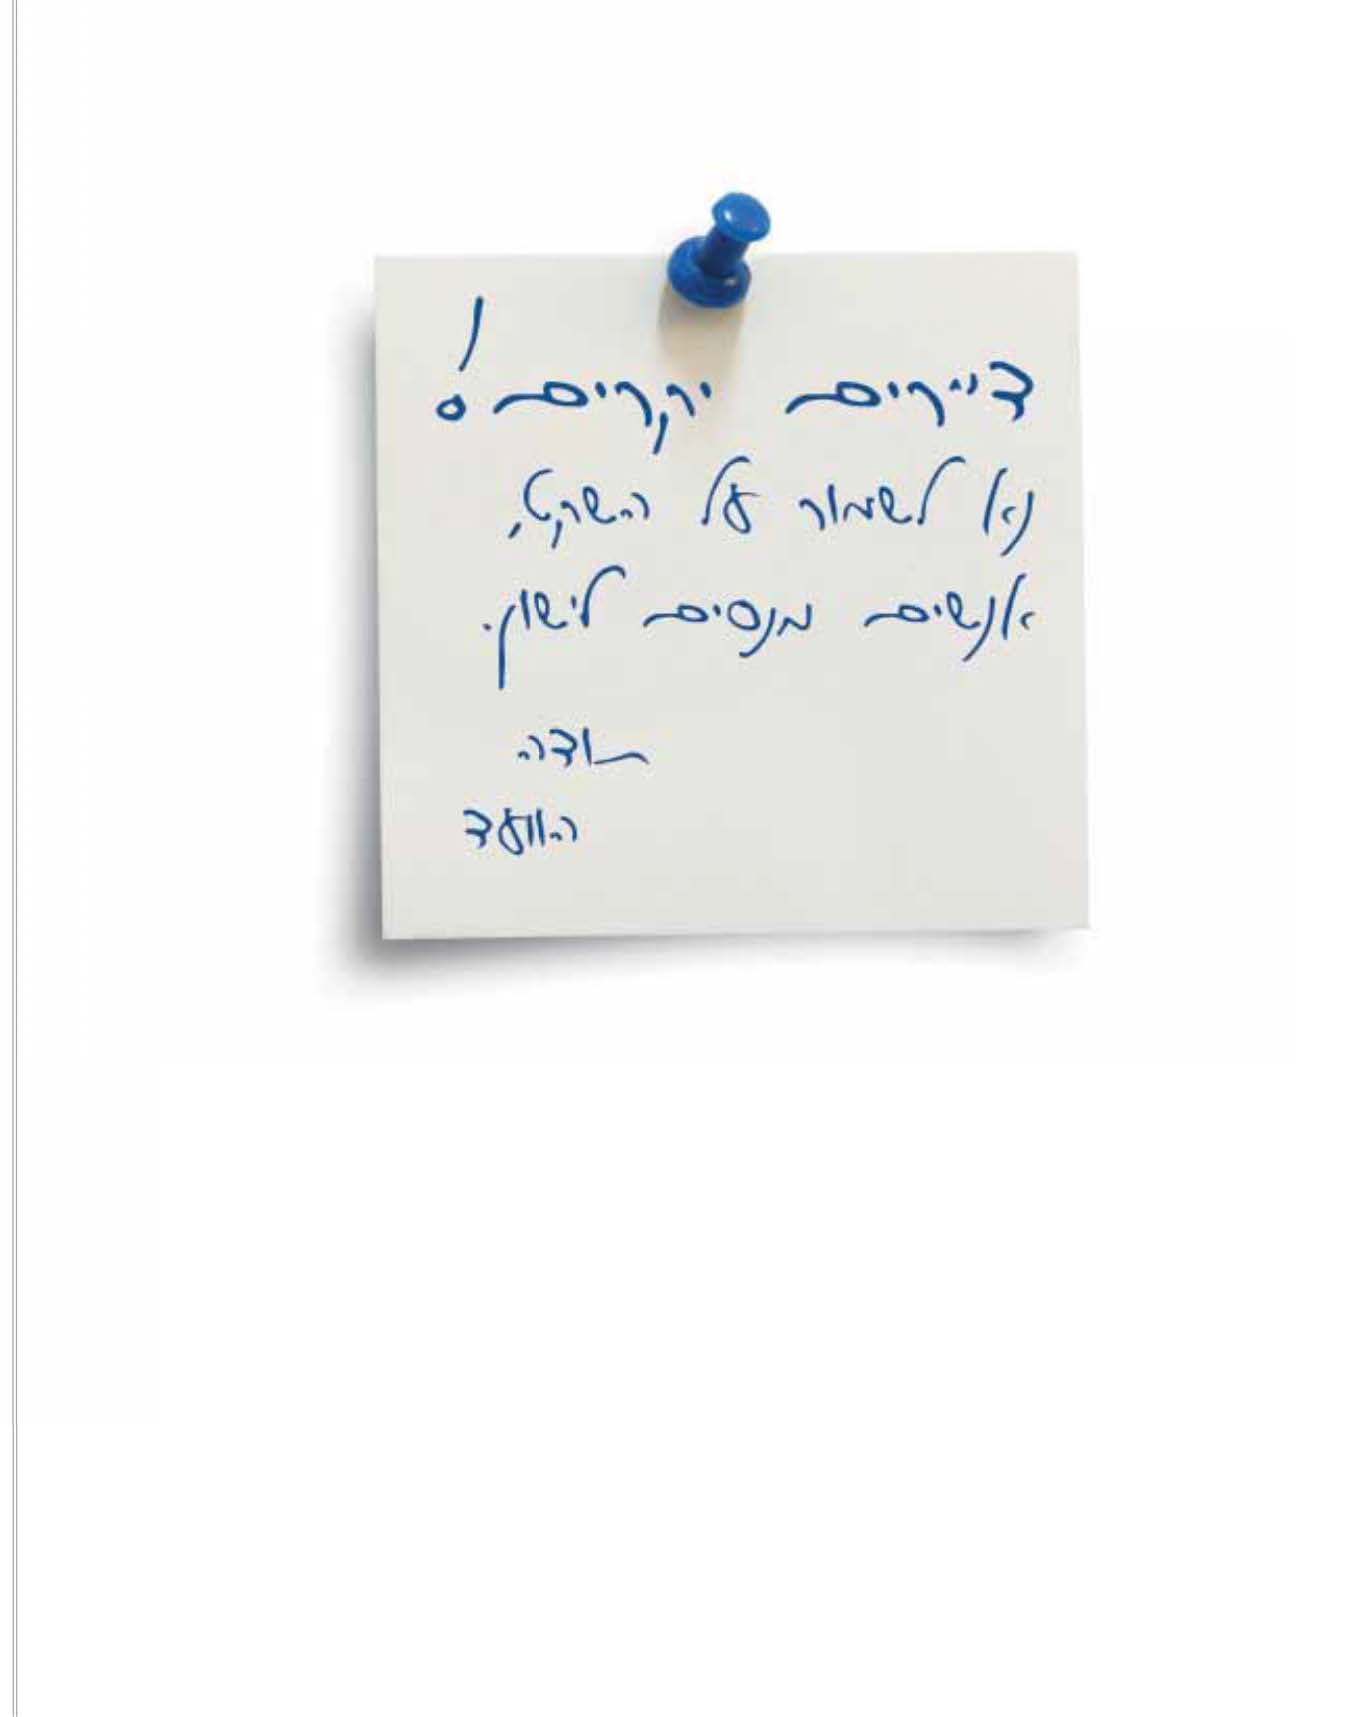 דיירים יקרים!
נא לשמור על השקט,
אנשים מנסים לישון.
תודה
הוועד